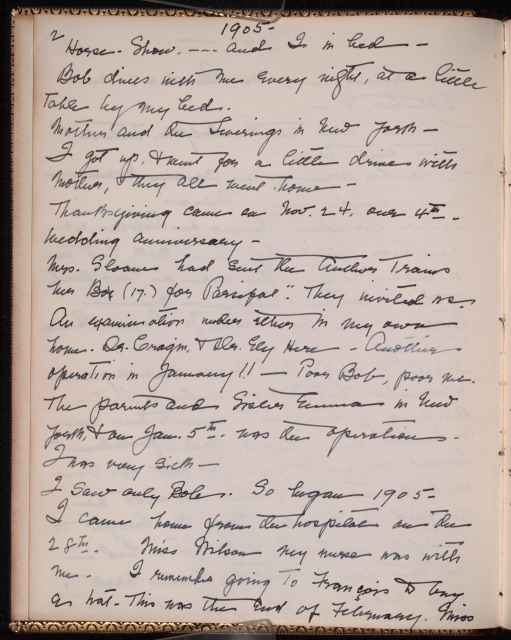 2 1905-
Horse-Show. --- and I in bed -
Bob dines with me every night, at a little
table by my bed.
Mother and the Swerings in New York -
I got up, & went for a little drive with
Mother, & they all went home -
Thanksgiving came on Nov. 24, our 4th -
wedding anniversary -
Mrs. Sloane had sent the Andrew
her Box (17.) for "Parsifal". They invited us -
An examination under ether in my own
home. Drs. & Dr. Ely Here - Another
operation in January!! - Poor Bob, poor me.
The parents and Sister Emma in New
York, & on Jan. 5th. was the operation -
I was very sick -
I saw only Bob. So began 1905 -
I came home from the hospital on the
28th. Miss Wilson my nurse was with
me. I remember going to François to buy
a hat - This was the End of February. Miss